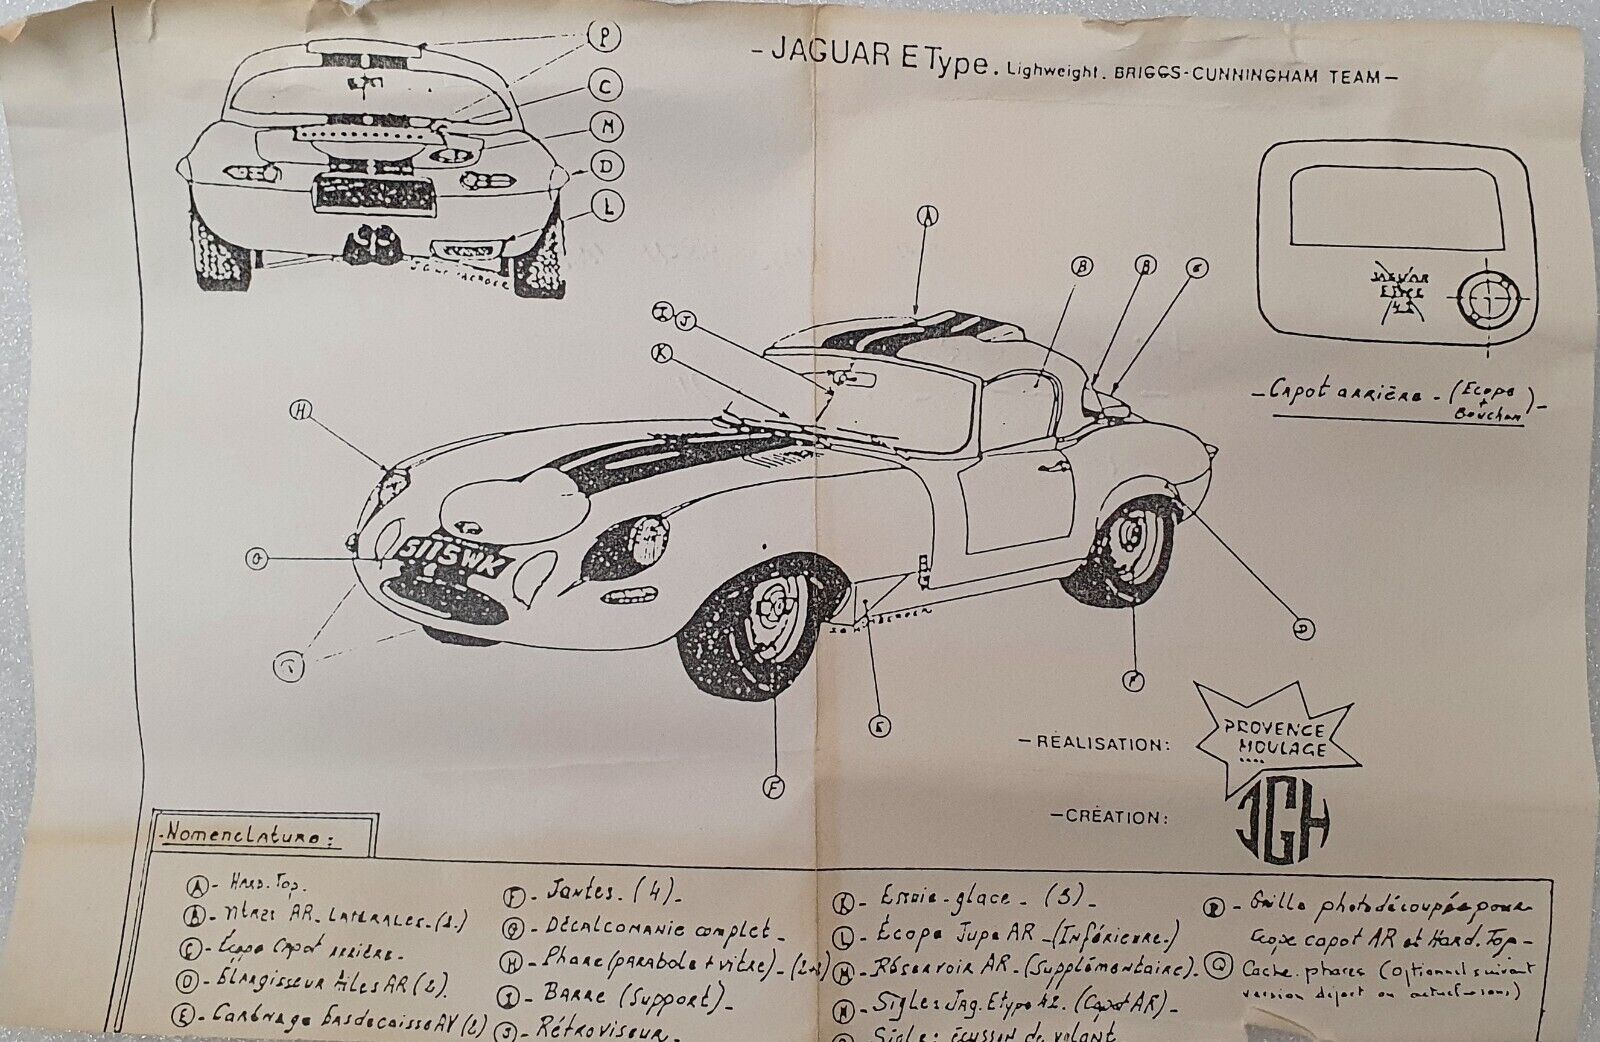 - JAGUAR E Type. Lighweight. BRIGGS-CUNNINGHAM TEAM -
P
C
M
D
L
A
B
B
G
I J
K
H
G
D
F
E
F
5115WK
JAGUAR
ETYPE
4.2
- Capot arrière - (Ecope
+
Bouchon) -
- RÉALISATION:
PROVENCE
MOULAGE
- CRÉATION:
JGH
- Nomenclature :
A - Hard. Top.
B - Vitres AR. LATERALES - (2.)
C - Écope Capot arrière -
D - Elargisseur Ailes AR (2).
E - Carénage bas de caisse AV (2)
F - Jantes. (4) -
G - Décalcomanie complet -
H - Phare (parabole + vitre) - (2+2)
I - Barre (Support) -
J - Rétroviseur -
K - Essuie-glace - (3) -
L - Écope Jupe AR - (Inférieure.)
M - Réservoir AR - (Supplémentaire).
N - Sigles Jag. Etype 4.2. (Capot AR) -
Sigle : écusson de volant
P - Grille photodécoupée pour
Ecope capot AR et Hard. Top -
Q - Cache. phares (optionnel suivant
version départ ou)